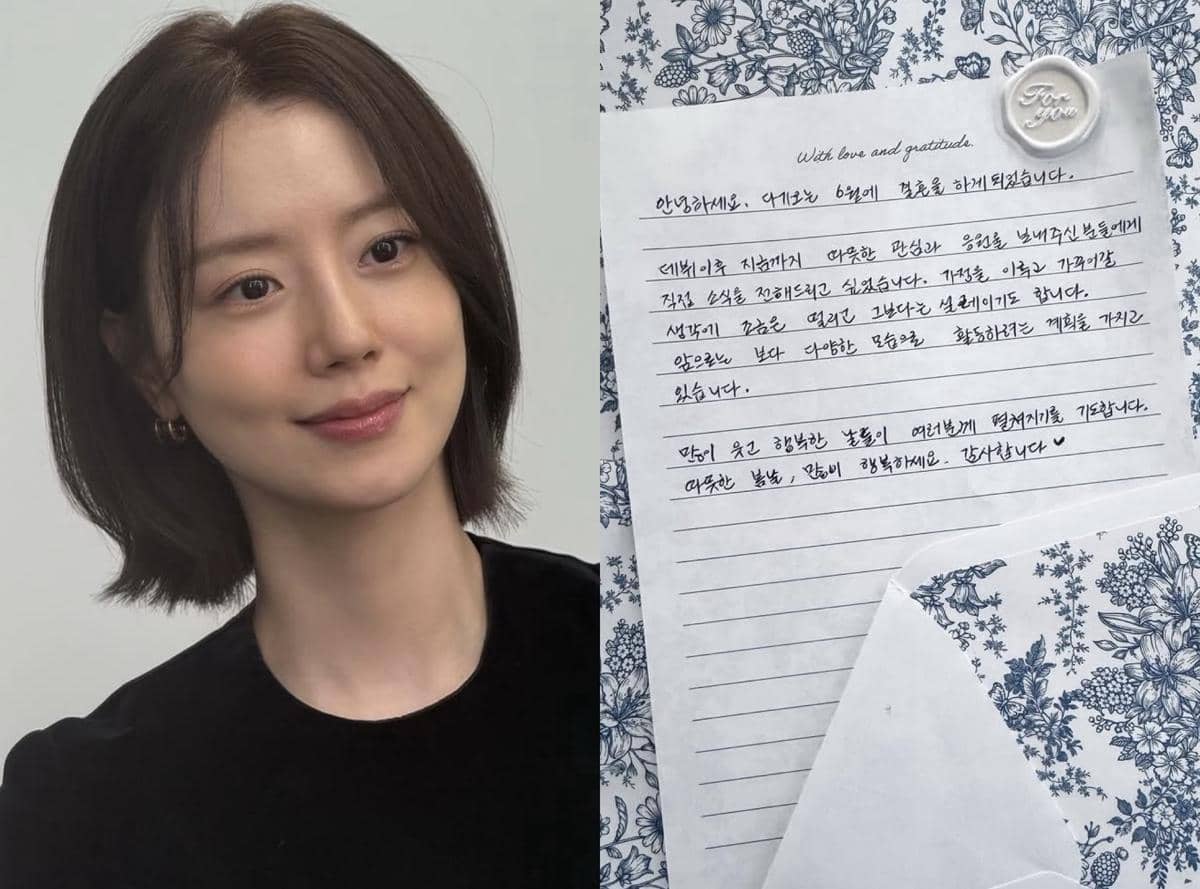 For
you
With love and gratitude.
안녕하세요. 다가오는 6월에 결혼을 하게 되었습니다.
데뷔이후 지금까지 따뜻한 관심과 응원을 보내주신 분들에게
직접 소식을 전해드리고 싶었습니다. 가정을 이루고 가꾸어갈
생각에 조금은 떨리고 그보다는 설레이기도 합니다.
앞으로는 보다 다양한 모습으로 활동하려는 계획을 가지고
있습니다.
많이 웃고 행복한 날들이 여러분께 펼쳐지기를 기도합니다.
따뜻한 봄날, 많이 행복하세요. 감사합니다♥